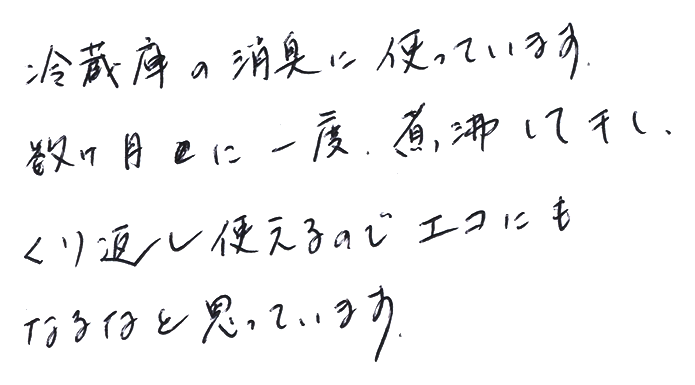 冷蔵庫の消臭に使っています.
数ヶ月に一度、煮沸して干し、
くり返し使えるのでエコにも
なるなと思っています.